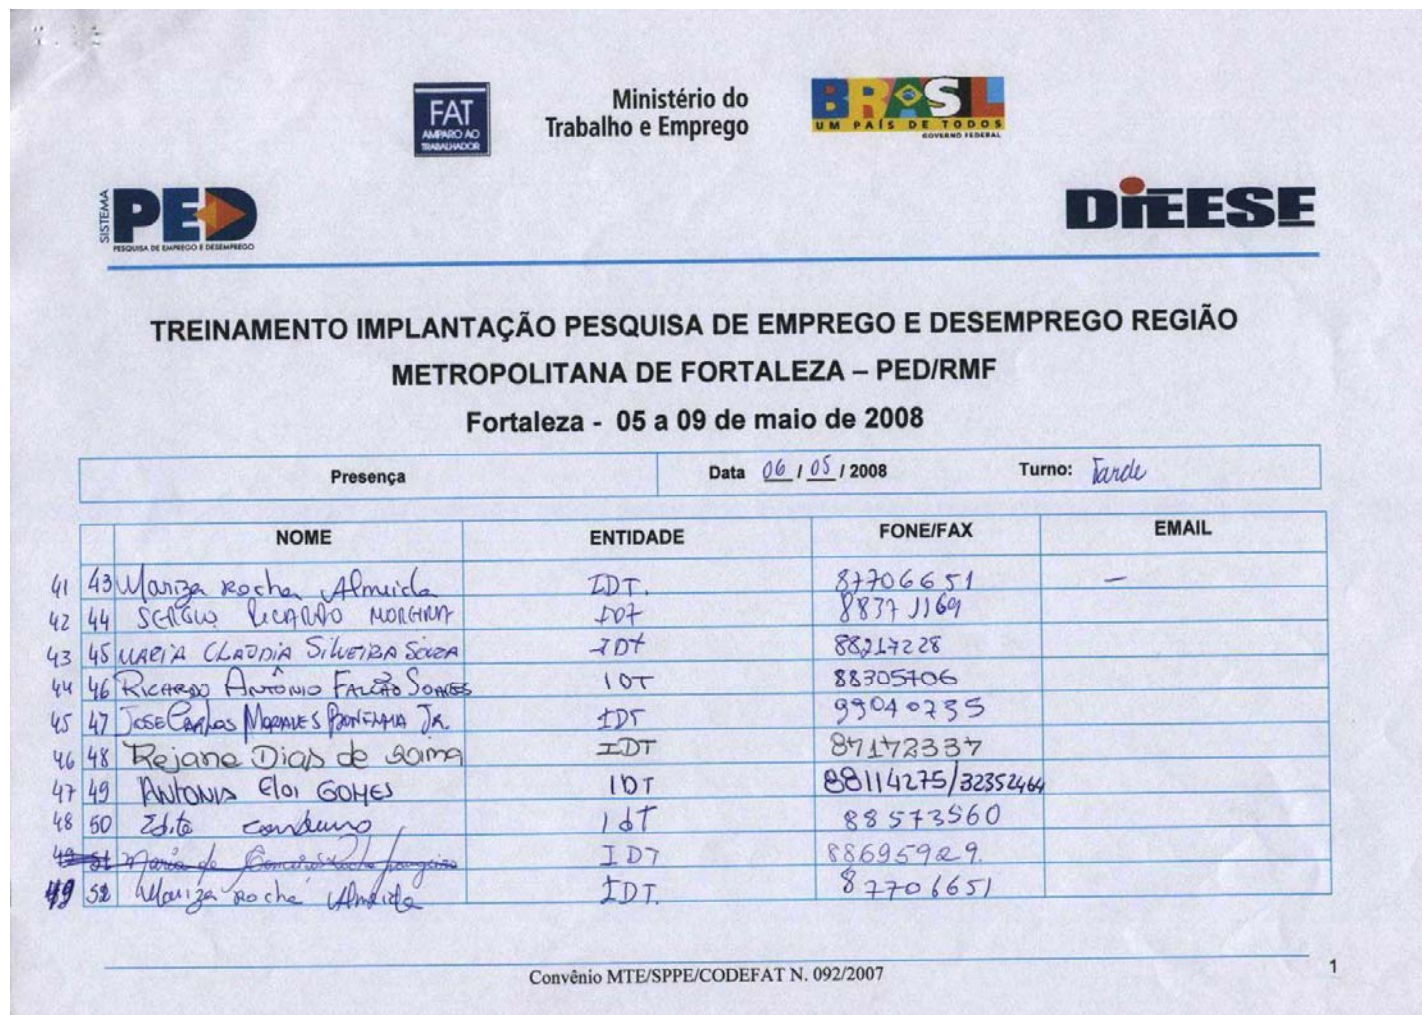 FAT
AMPARO AO
TRABALHADOR
Ministério do
Trabalho e Emprego
BRASIL
UM PAÍS DE TODOS
GOVERNO FEDERAL
SISTEMA
PED
PESQUISA DE EMPREGO E DESEMPREGO
DIEESE
TREINAMENTO IMPLANTAÇÃO PESQUISA DE EMPREGO E DESEMPREGO REGIÃO
METROPOLITANA DE FORTALEZA – PED/RMF
Fortaleza - 05 a 09 de maio de 2008
Presença Data 06 / 05 / 2008 Turno: Tarde
NOME ENTIDADE FONE/FAX EMAIL
41 43 Mariza Rocha Almeida IDT. 87706651 –
42 44 SERGIO RICARDO MOREIRA IDT 88371169
43 45 MARIA CLAUDIA SILVEIRA SOUZA IDT 88217228
44 46 RICARDO ANTÔNIO FALCÃO SOARES IDT 88305706
45 47 JOSE CARLOS MORAES BONFIM JR. IDT 99040735
46 48 Rejane Dias de IDT 87172337
47 49 ANTONIA Eloi GOMES IDT 88114275/32352464
48 50 Edite IdT 88573560
49 51 Maria da Conceição Rocha IDT 88695929.
49 52 Mariza Rocha Almeida IDT. 87706651
Convênio MTE/SPPE/CODEFAT N. 092/2007
1